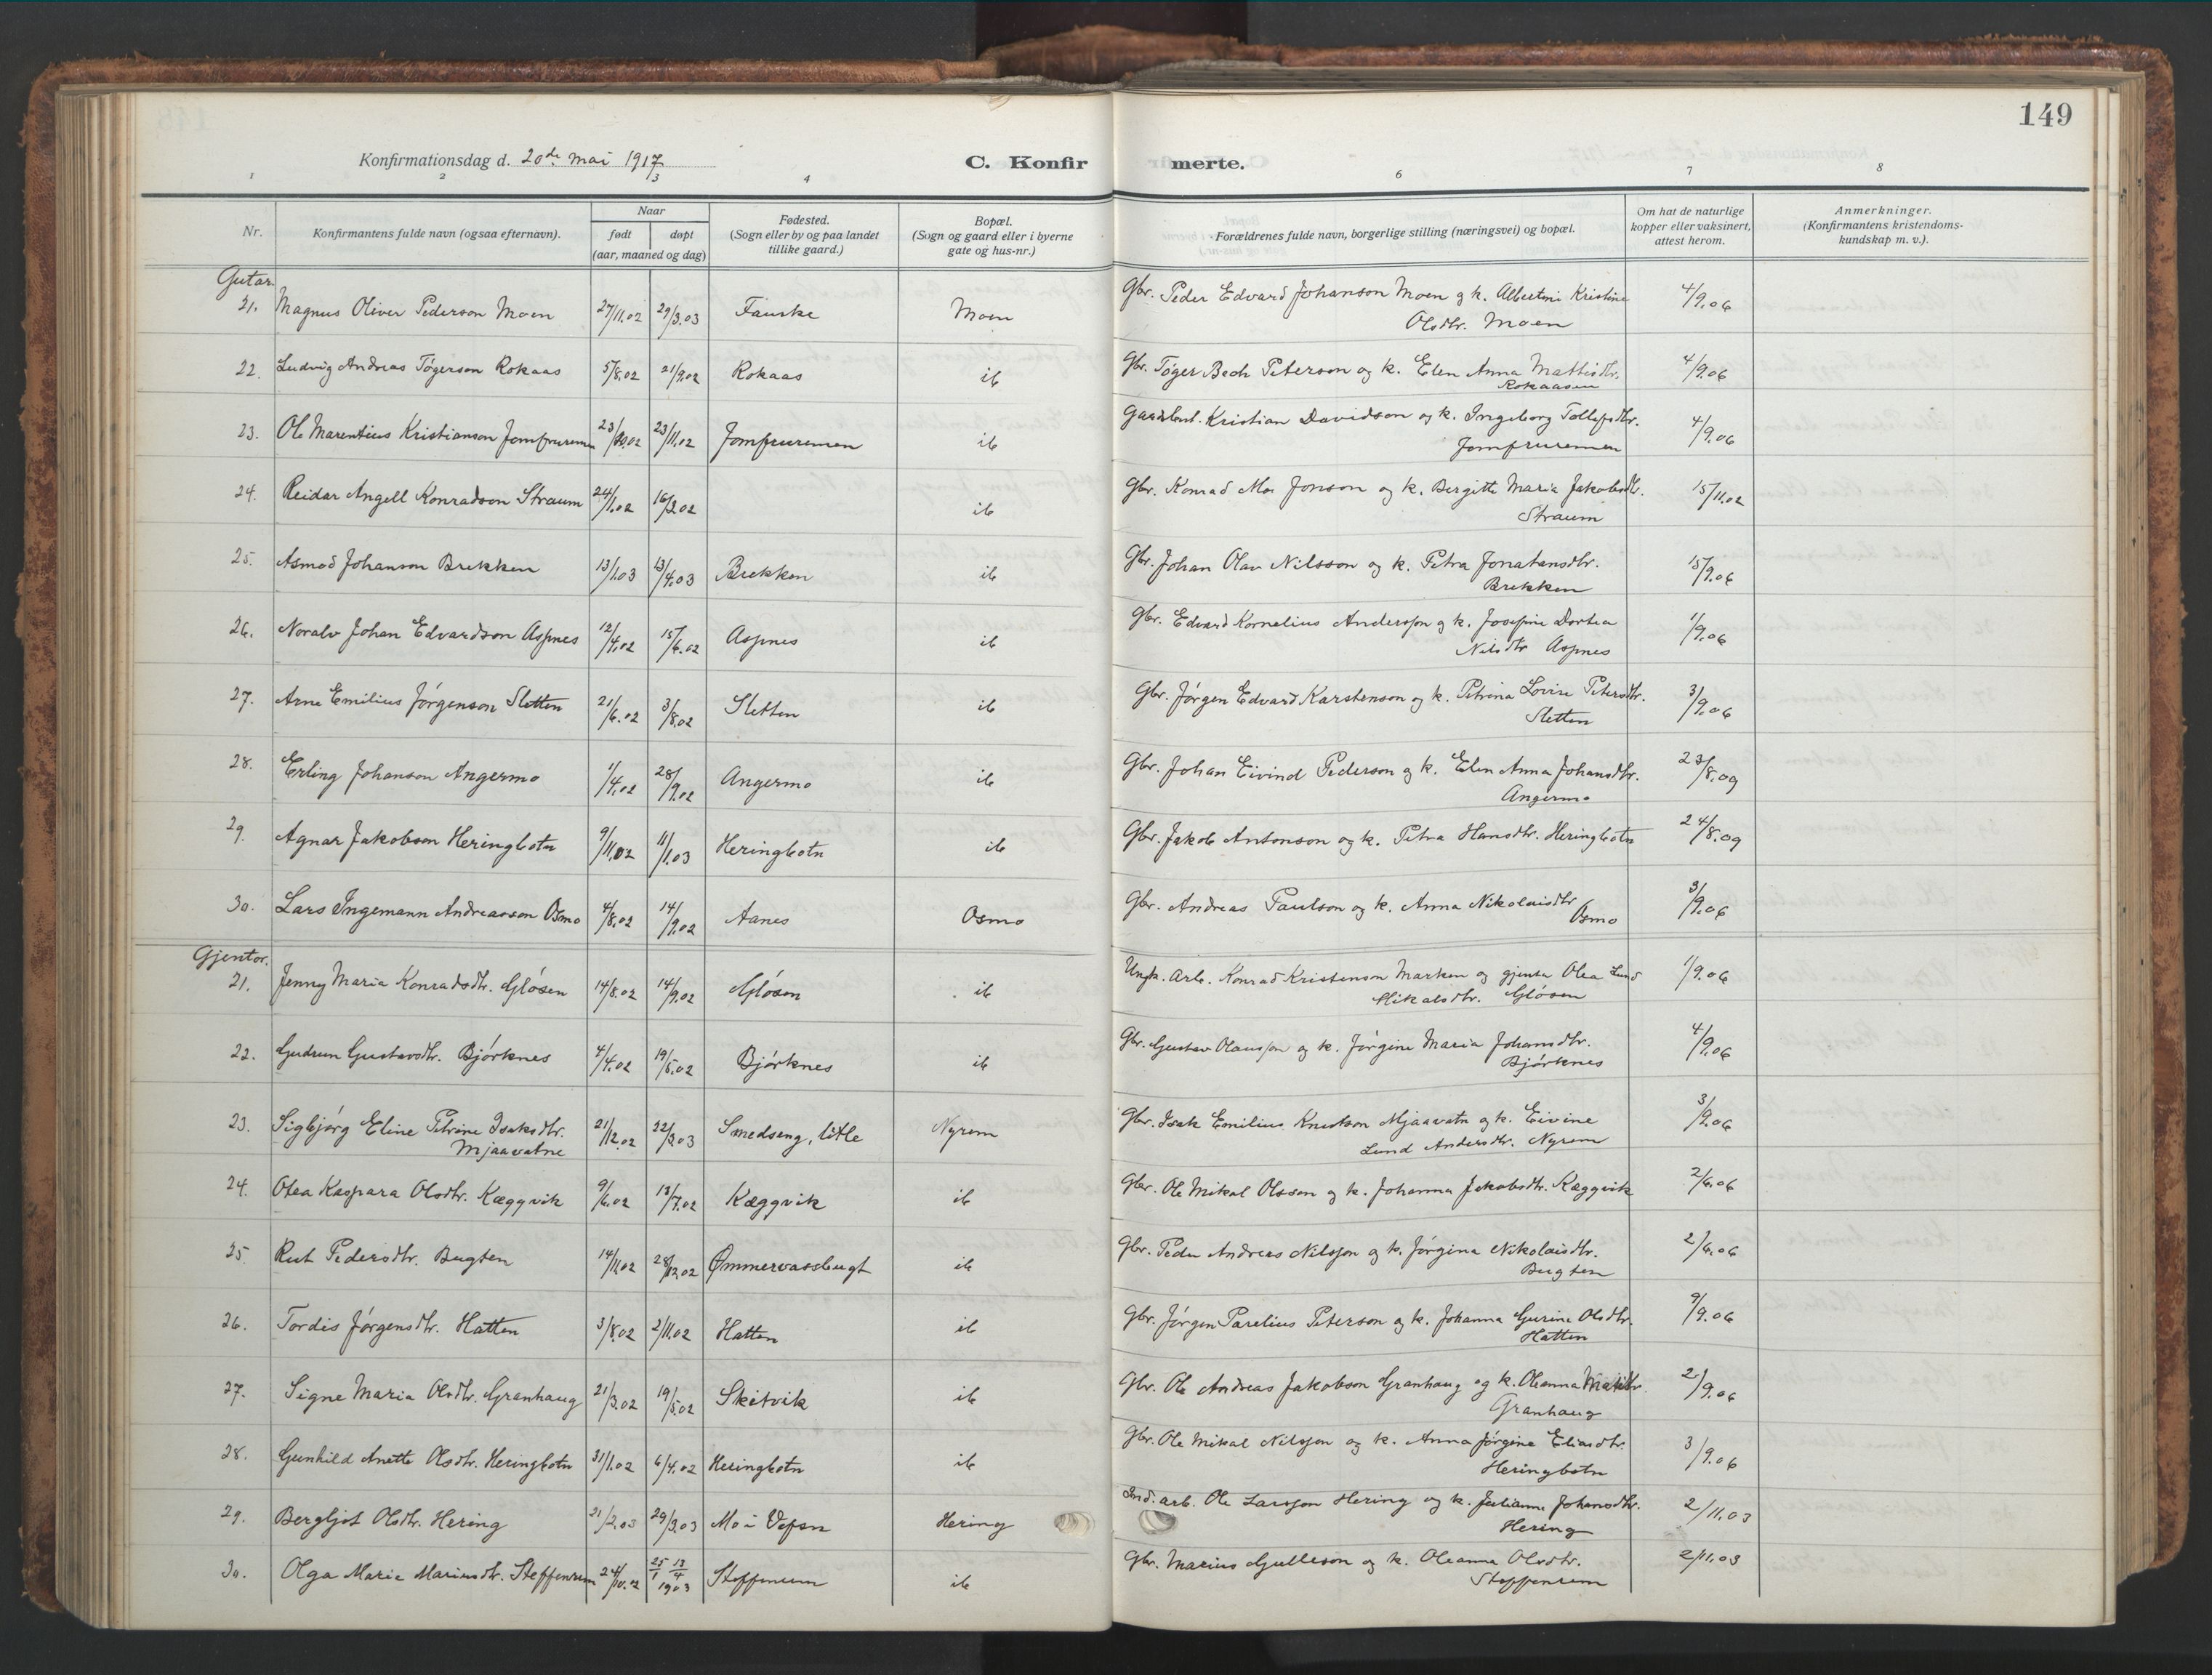 149
Konfirmationsdag d. 20de mai 1917
C. Konfirmerte.
1 2 3 4 6 7 8
Nr.
Konfirmantens fulde navn (ogsaa efternavn).
Naar
født døpt
(aar, maaned og dag)
Fødested.
(Sogn eller by og paa landet
tillike gaard.)
Bopæl.
(Sogn og gaard eller i byerne
gate og hus-nr.)
Forældrenes fulde navn, borgerlige stilling (næringsvei) og bopæl.
Om hat de naturlige
kopper eller vaksinert,
attest herom.
Anmerkninger.
(Konfirmantens kristendoms-
kundskap m. v.).
Gutar.
21. Magnus Oliver Pederson Moen 27/11.02 29/3.03 Fauske Moen Gbr. Peder Edvard Johanson Moen og k. Albertine Kristine 4/9.06
Olsdtr. Moen
22. Ludvig Andreas Tøgerson Rokaas 5/8.02 21/9.02 Rokaas ib Gbr. Tøger Bech Peterson og k. Elen Anna Mathisdtr. 4/9.06
Rokaasen
23. Ole Marentius Kristianson Jomfruremen 23/10.02 23/11.02 Jomfruremen ib Gaardbrt. Kristian Davidson og k. Ingeborg Tollefsdtr. 4/9.06
Jomfruremen
24. Reidar Angell Konradson Straum 24/1.02 16/3.02 ib Gbr. Konrad Mo Jonson og k. Bergitte Maria Jakobsdtr. 15/11.02
Straum
25. Asmod Johanson Brekken 13/1.03 13/4.03 Brekken ib Gbr. Johan Olav Nilsson og k. Petra Jonatansdtr. 15/9.06
Brekken
26. Noralv Johan Edvardson Aspnes 12/4.02 15/6.02 Aspnes ib Gbr. Edvard Kornelius Andersson og k. Josefine Dortea 1/9.06
Nilsdtr Aspnes
27. Arne Emilius Jørgenson Sletten 21/6.02 3/8.02 Sletten ib Gbr. Jørgen Edvard Karstenson og k. Petrina Lovise Petersdtr. 3/9.06
Sletten
28. Erling Johanson Angermo 1/4.02 28/9.02 Angermo ib Gbr. Johan Eivind Pederson og k. Elen Anna Johansdtr. 23/8.09
Angermo
29. Agnar Jakobson Heringbotn 9/11.02 11/1.03 Heringbotn ib Gbr. Jakob Antonson og k. Petra Hansdtr. Heringbotn 24/8.09
30. Lars Ingemann Andreasson Osmo 4/8.02 14/9.02 Aanes Osmo Gbr. Andreas Paulson og k. Anna Nikolaisdtr 3/9.06
Osmo
Gjentor.
21. Jenny Maria Konradsdtr. Gløsen 14/8.02 14/9.02 Gløsen ib Ungk. Arb. Konrad Kristenson Marken og gjenta Olea Lund 1/9.06
Mikalsdtr. Gløsen
22. Gudrun Gustavsdtr. Bjørknes 4/4.02 19/5.02 Bjørknes ib Gbr. Gustav Olausson og k. Jørgine Maria Johansdtr. 4/9.06
Bjørknes
23. Sigbjørg Eline Petrine Isaksdtr. 21/12.02 22/3.03 Smedseng, litle Nyrem Gbr. Isak Emilius Knutson Mjaavatn og k. Eivine 3/9.06
Mjaavatne Lund Andersdtr. Nyrem
24. Olea Kaspara Olsdtr. Kæggvik 9/6.02 13/7.02 Kæggvik ib Gbr. Ole Mikal Olsson og k. Johanna Jakobsdtr. Kæggvik 2/6.06
25. Rut Pedersdtr. Bugten 14/11.02 28/12.02 Ømmervassbugt ib Gbr. Peder Andreas Nilsson og k. Jørgina Nikolaisdtr. 2/6.06
Bugten
26. Tordis Jørgensdtr. Hatten 3/8.02 2/11.02 Hatten ib Gbr. Jørgen Parelius Peterson og k. Johanna Gurine Olsdtr. 9/9.06
Hatten
27. Signe Maria Olsdtr. Granhaug 21/3.02 19/5.02 Skitvik ib Gbr. Ole Andreas Jakobson Granhaug og k. Oleanna 2/9.06
Granhaug
28. Gunhild Anette Olsdtr. Heringbotn 31/1.02 6/4.02 Heringbotn ib Gbr. Ole Mikal Nilsson og k. Anna Jørgine Eliasdtr. 3/9.06
Heringbotn
29. Bergljot Olsdtr. Hering 21/2.03 29/3.03 Mo i Vefsn Hering Ind. arb. Ole Larsson Hering og k. Julianne Johansdtr. 2/11.03
Hering
30. Olga Marie Mariusdtr. Steffenrem 24/10.02 25/1 13/4 1903 Steffenrem ib Gbr. Marius Gulleson og k. Oleanna Olsdtr. 2/11.03
Steffenrem